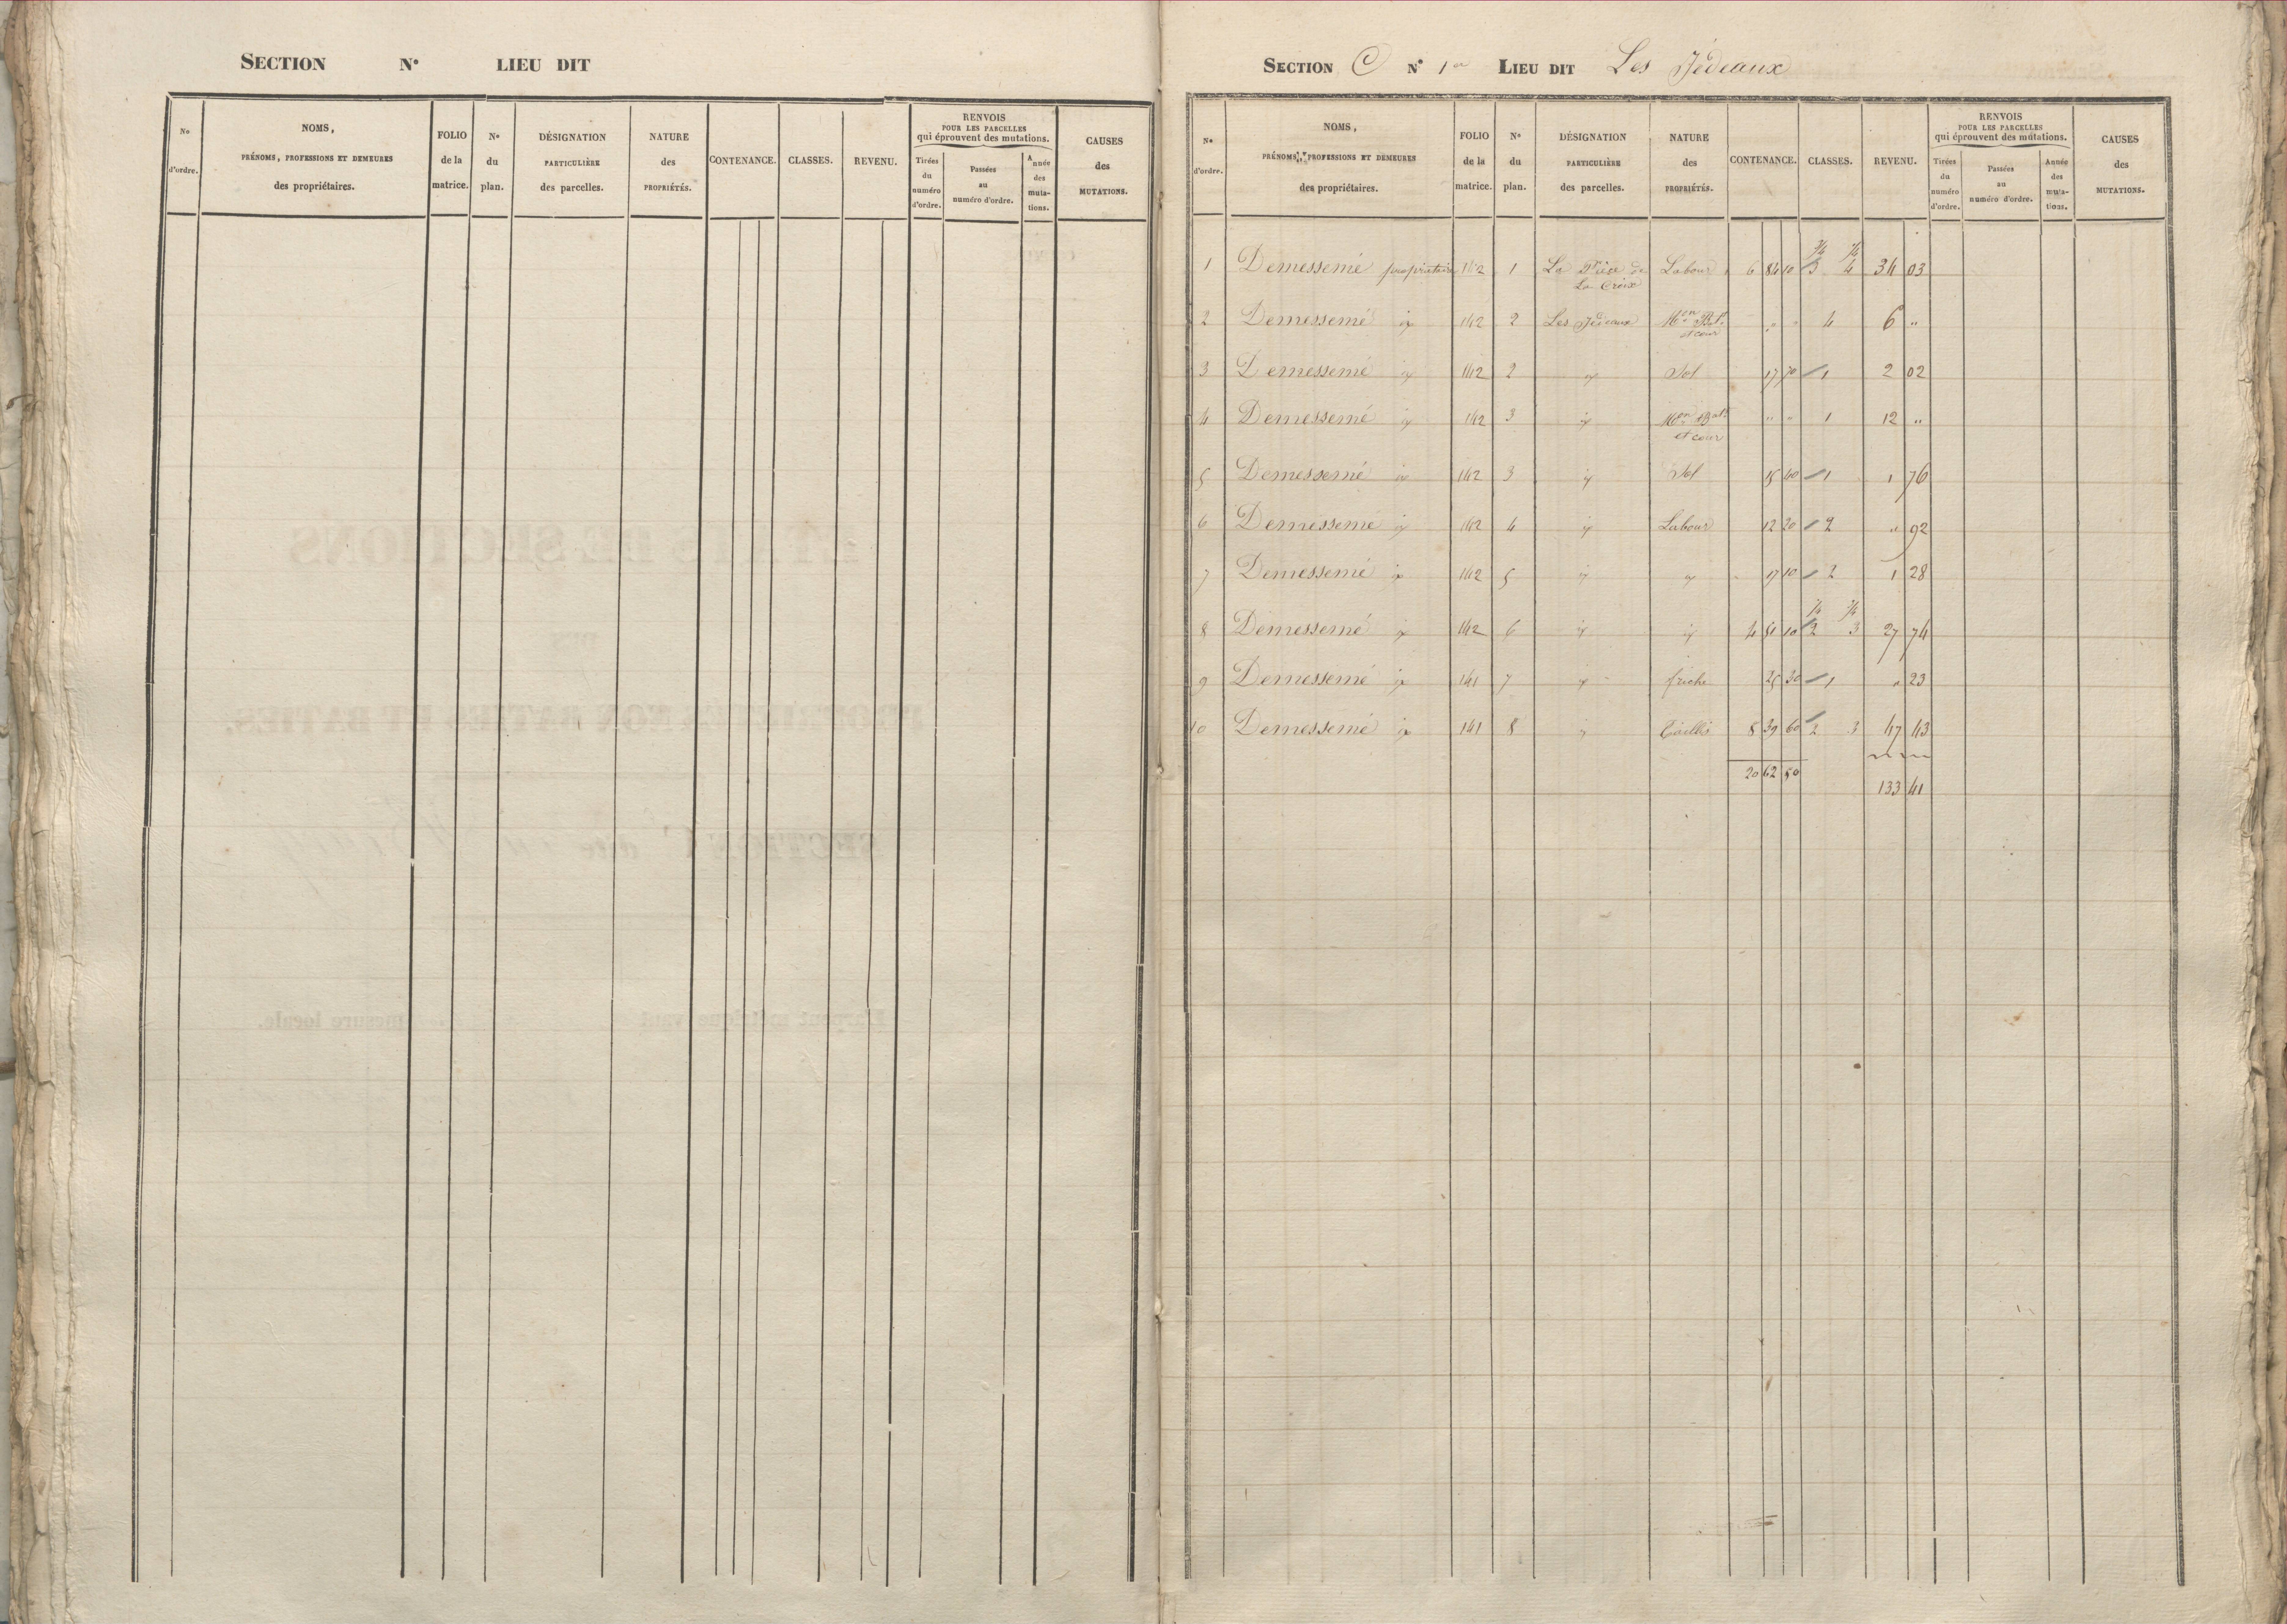 SECTION N° LIEU DIT
No d'ordre.
NOMS,
PRÉNOMS, PROFESSIONS ET DEMEURES
des propriétaires.
FOLIO
de la
matrice.
N°
du
plan.
DÉSIGNATION
PARTICULIÈRE
des parcelles.
NATURE
des
PROPRIÉTÉS.
CONTENANCE.
CLASSES.
REVENU.
RENVOIS
POUR LES PARCELLES
qui éprouvent des mutations.
Tirées
du
numéro
d'ordre.
Passées
au
numéro d'ordre.
Année
des
muta-
tions.
CAUSES
des
MUTATIONS.
SECTION C N° 1er LIEU DIT Les Jédeaux
N°
d'ordre.
NOMS,
PRÉNOMS, PROFESSIONS ET DEMEURES
des propriétaires.
FOLIO
de la
matrice.
N°
du
plan.
DÉSIGNATION
PARTICULIÈRE
des parcelles.
NATURE
des
PROPRIÉTÉS.
CONTENANCE.
CLASSES.
REVENU.
RENVOIS
POUR LES PARCELLES
qui éprouvent des mutations.
Tirées
du
numéro
d'ordre.
Passées
au
numéro d'ordre.
Année
des
muta-
tions.
CAUSES
des
MUTATIONS.
1 Demessemé propriétaire 142 1 La Pièce de La Croix Labour 6 84 10 3 4 34 03
2 Demessemé id 142 2 Les Jédeaux Mon Bat. et cour " " 4 6 "
3 Demessemé id 142 2 id Sol 17 70 1 2 02
4 Demessemé id 142 3 id Mon Bat. et cour " " 1 12 "
5 Demessemé id 142 3 id Sol 15 40 1 1 76
6 Demessemé id 142 4 id Labour 12 20 2 " 92
7 Demessemé id 142 5 id id 17 10 2 1 28
8 Demessemé id 142 6 id id 4 51 10 2 3 27 74
9 Demessemé id 141 7 id friche 25 30 1 " 23
10 Demessemé id 141 8 " Taillis 8 39 60 2 3 47 43
20 62 50
133 41